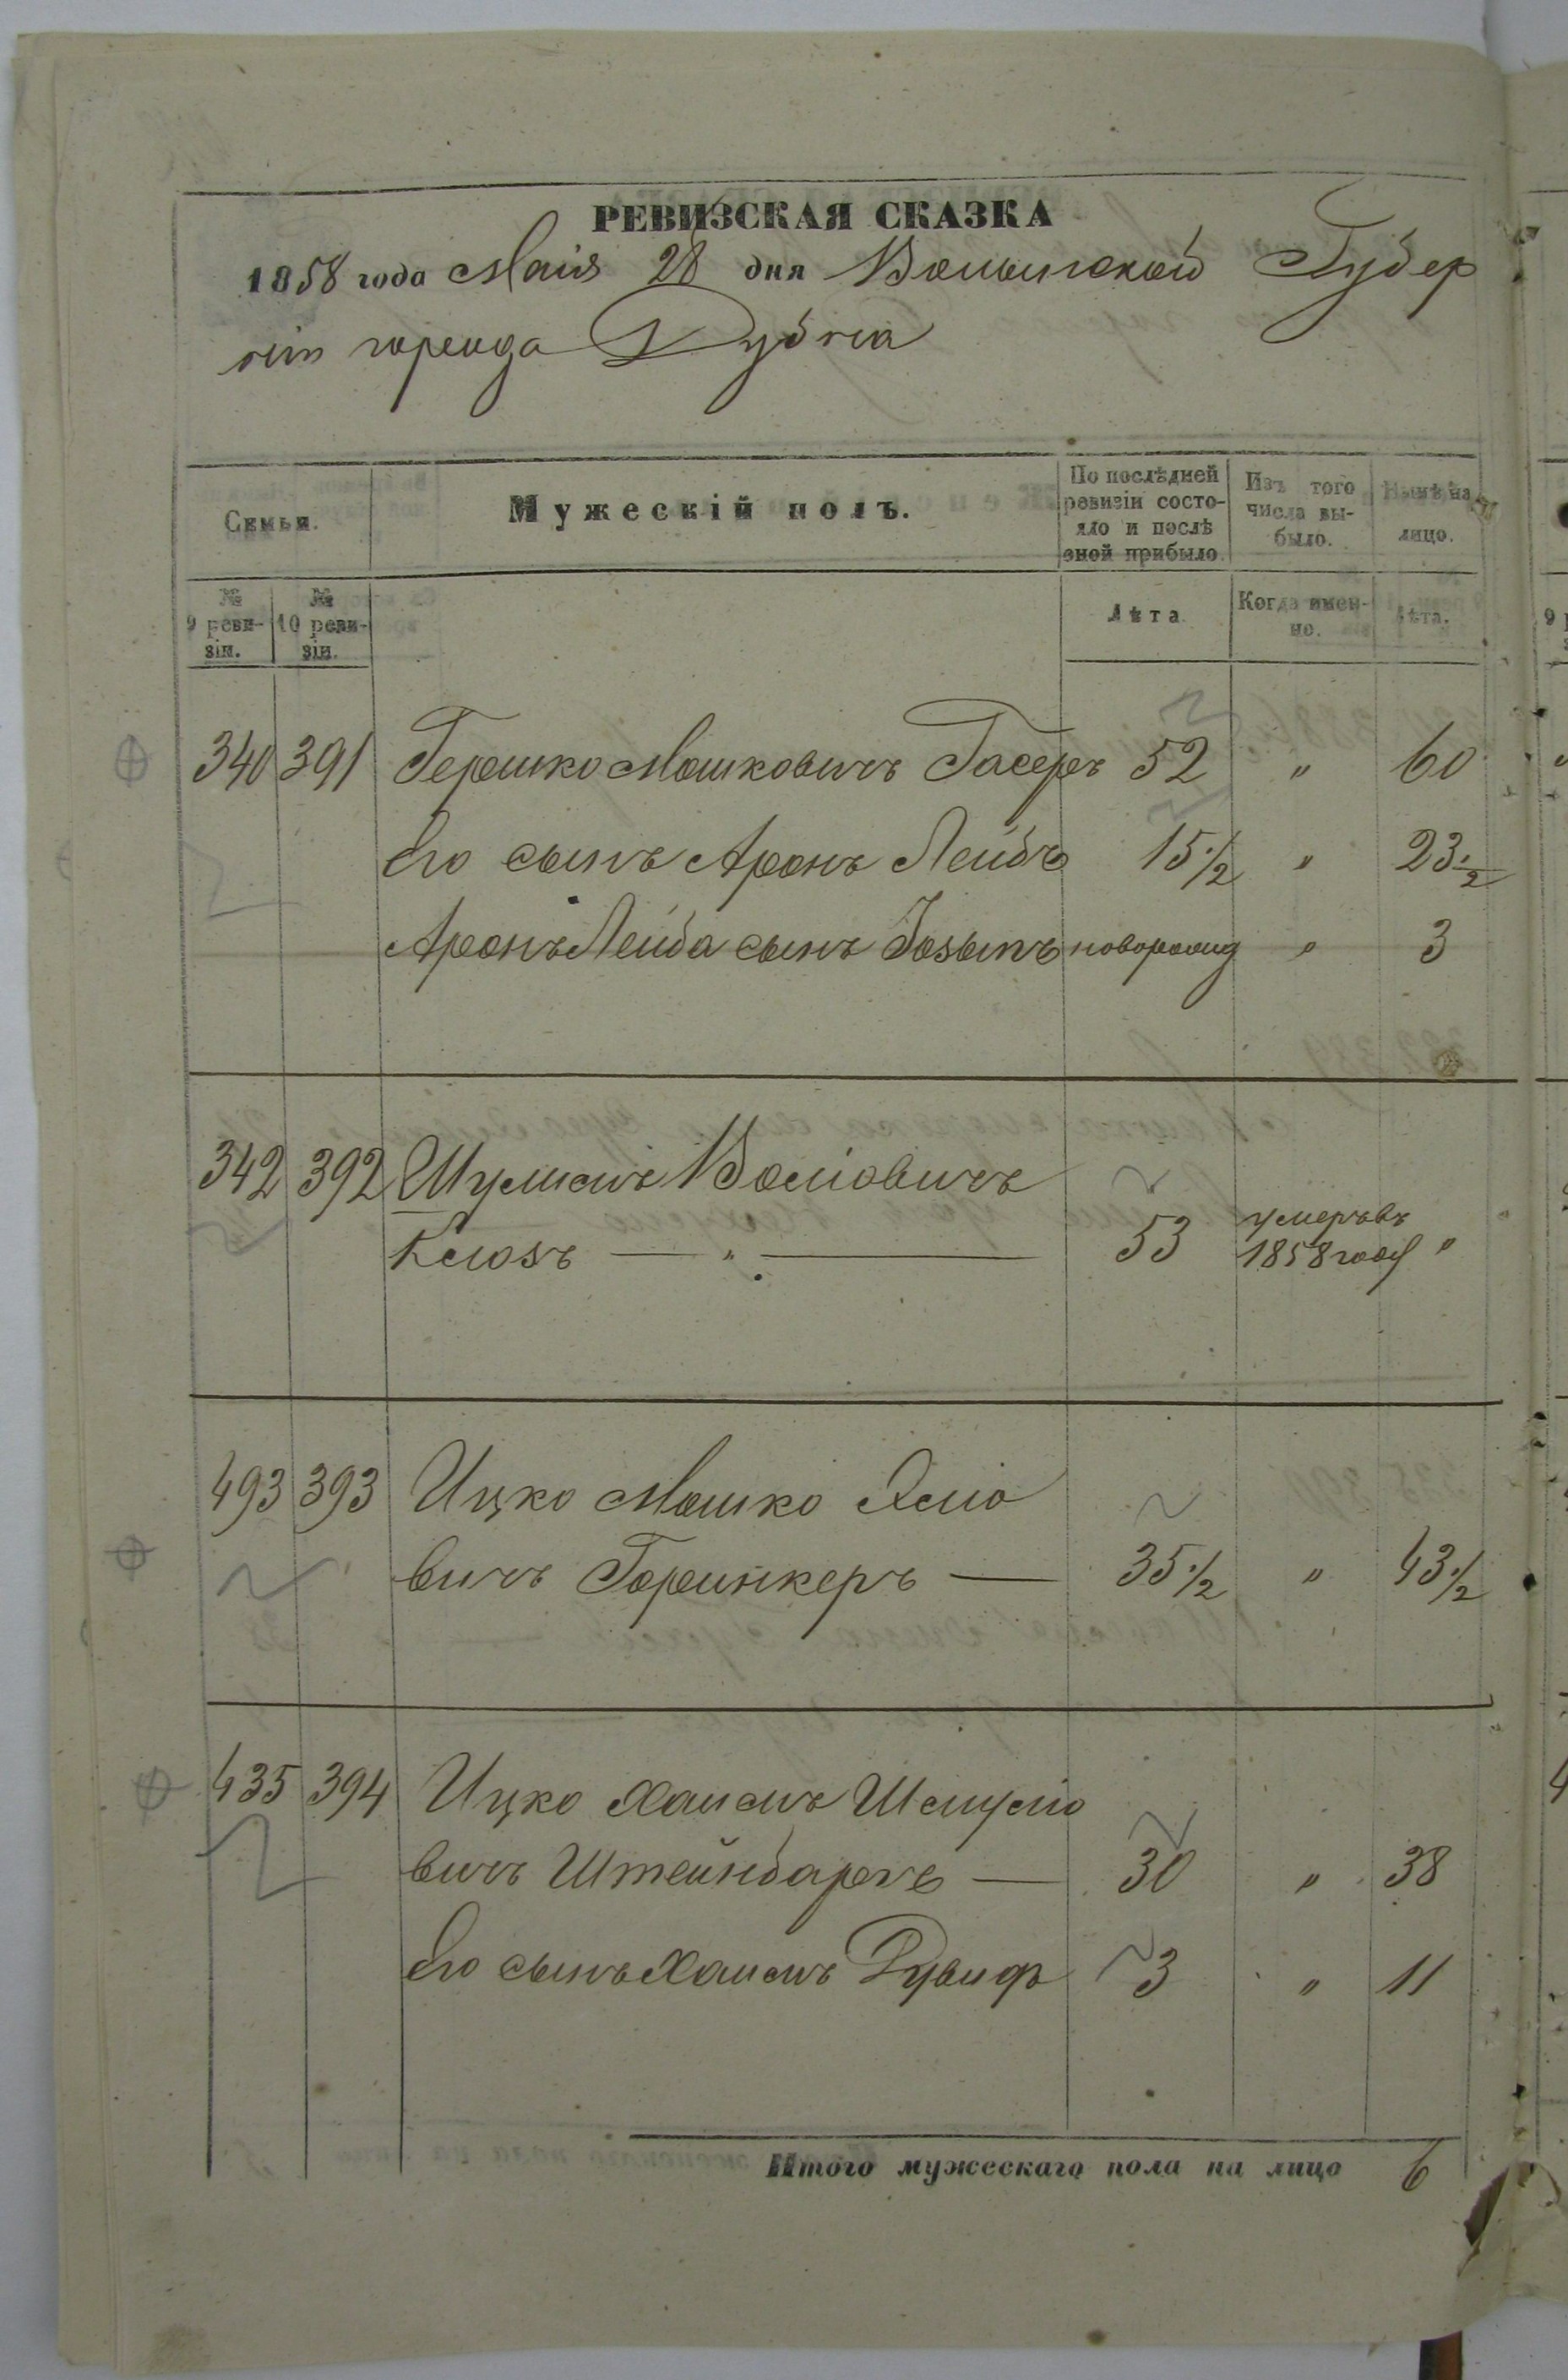 РЕВИЗСКАЯ СКАЗКА
1858 года Маія 28 дня Волынской Губер
ніи города Дубна
Семьи.
Мужескій полъ.
По послѣдней ревизіи состояло и послѣ оной прибыло.
Изъ того числа выбыло.
Нынѣ на лицо.
№ 9 ревизіи.
№ 10 ревизіи.
Лѣта.
Когда именно.
Лѣта.
340 391 Гершко Мошковичъ Гасеръ 52 " 60
Его сынъ Аронъ Лейбъ 15 1/2 " 23 1/2
Аронъ Лейба сынъ Іозыпъ новорожд " 3
342 392 Шулимъ Волiовичъ
Клюзъ — " — 53 умеръ въ 1858 году "
493 393 Ицко Мошко
вичъ Горинкеръ — 35 1/2 " 43 1/2
435 394 Ицко Хаимъ Шмулiо
вичъ Штейнбаргъ — 30 " 38
Его сынъ Хаимъ Рувинъ 3 " 11
Итого мужескаго пола на лицо 6